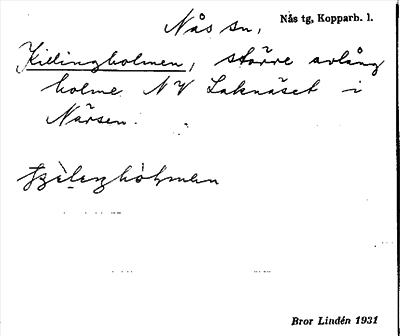 Nås sn, Nås tg, Kopparb. l.
Killingholmen, större avlång
holme NV Laknäset i
Närsen.
Bror Lindén 1931